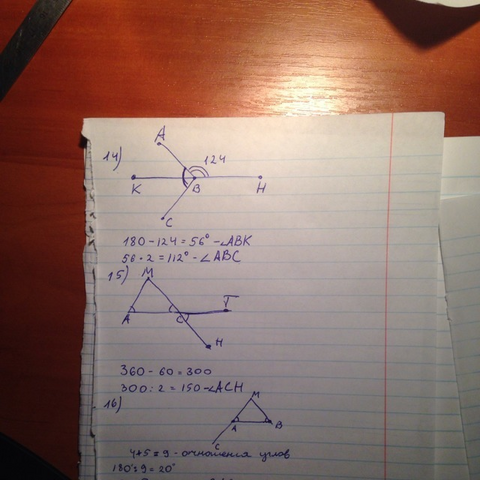 14)
A
124
K B H
C
180 - 124 = 56° - ∠ABK
56 · 2 = 112° - ∠ABC
15)
M
A C T
H
360 - 60 = 300
300 : 2 = 150 - ∠ACH
16)
M
A B
C
4+5=9 - отношения углов
180° : 9 = 20°